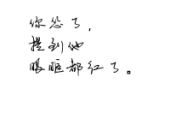 你怂了，
提到他
眼眶都红了。